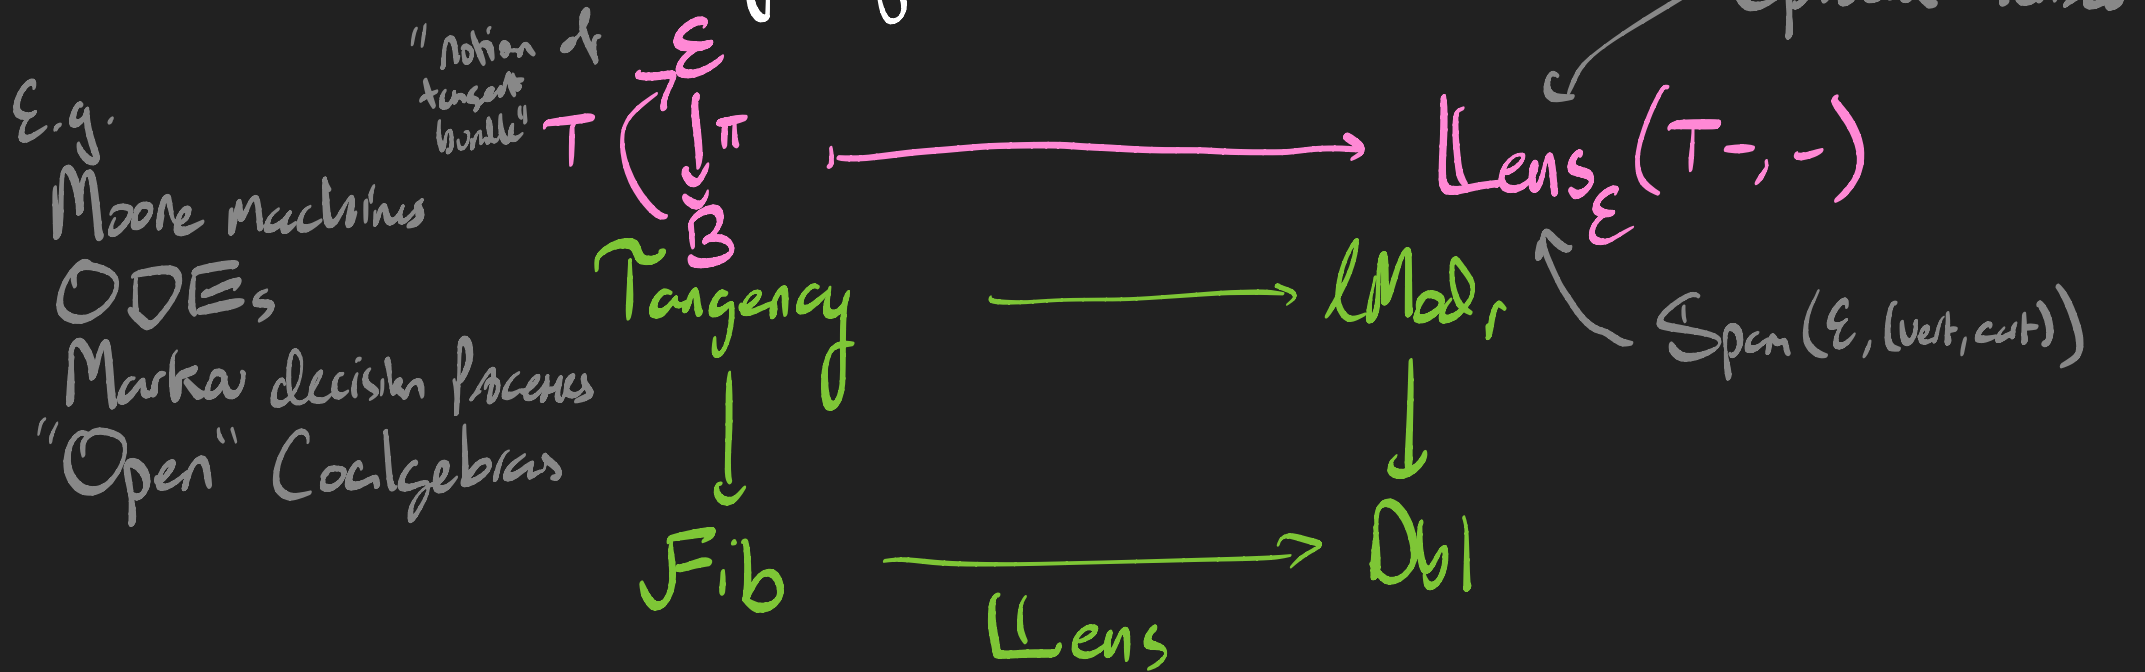 E.g.
Moore machines
ODEs
Markov decision processes
"Open" Coalgebras
"notion of
tangent
bundle"
T
ℰ
π
B
𝕃ens_ℰ(T-, -)
Tangency
lMod_r
Span(ℰ, (vert, cart))
Fib
𝕃ens
Dbl